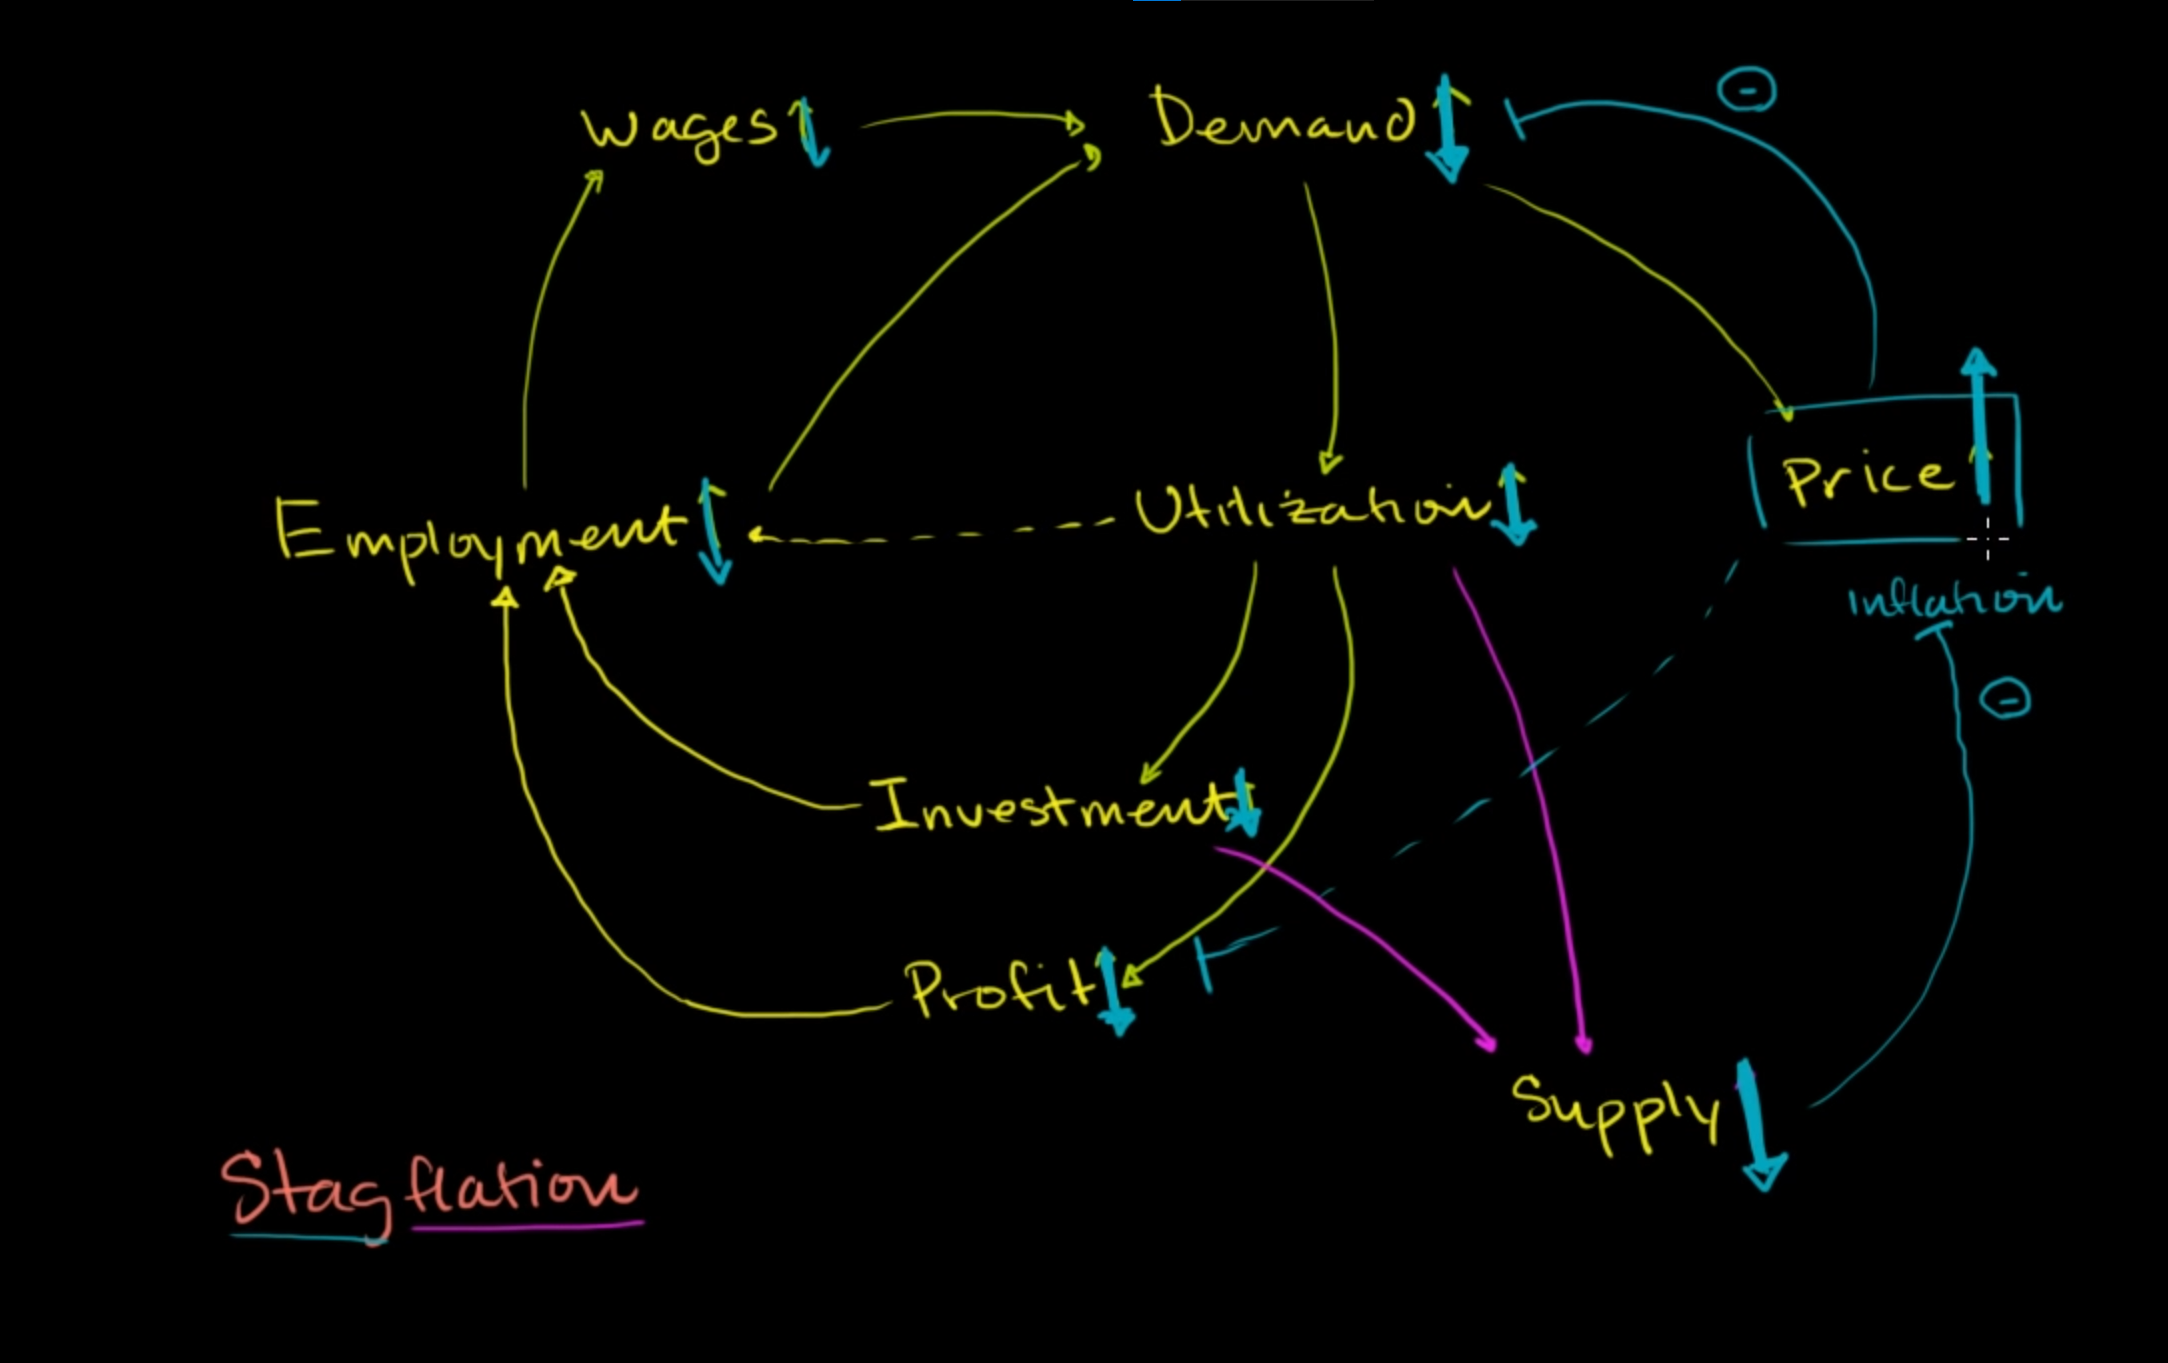 Wages
Demand
Employment
Utilization
Price
Inflation
Investment
Profit
Supply
Stagflation